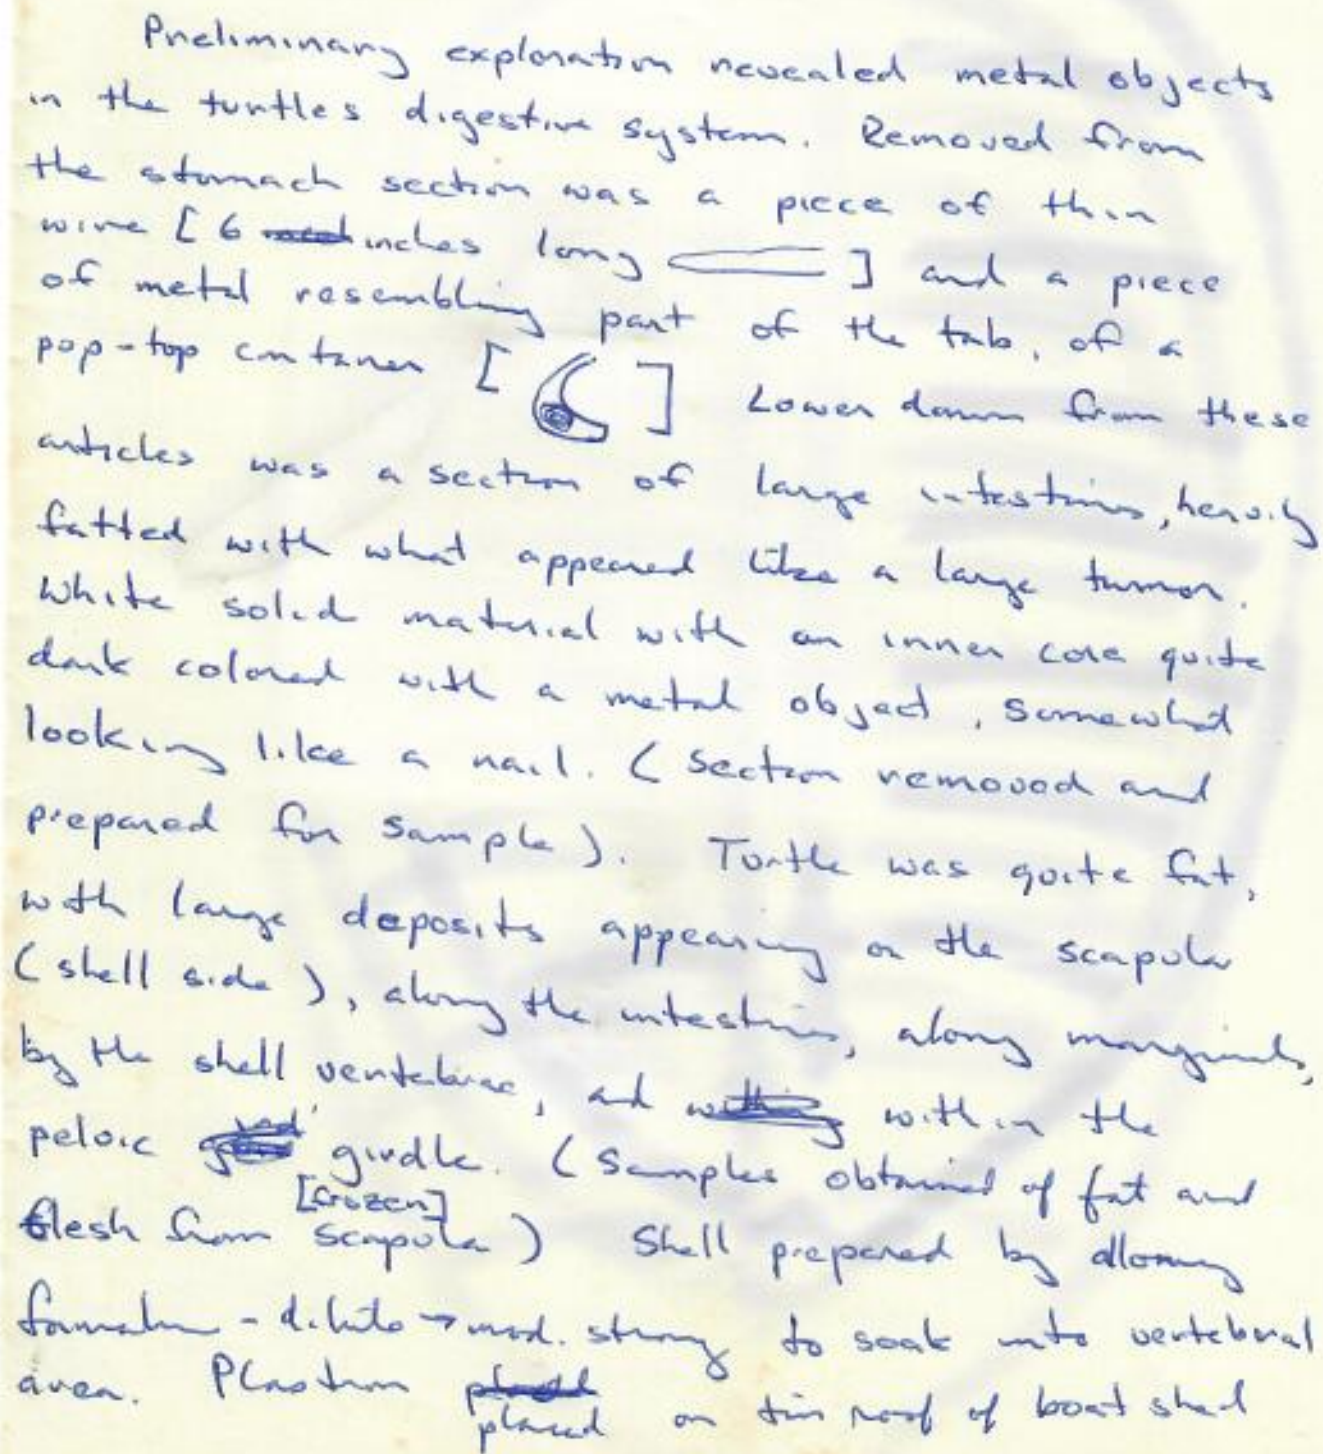 Preliminary exploration revealed metal objects
in the turtles digestive system. Removed from
the stomach section was a piece of thin
wire [6 inches long ] and a piece
of metal resembling part of the tab, of a
pop-top container [ ] Lower down from these
articles was a section of large intestines, heavily
fatted with what appeared like a large tumor.
White solid material with an inner core quite
dark colored with a metal object, somewhat
looking like a nail. (Section removed and
prepared for sample). Turtle was quite fat,
with large deposits appearing on the scapula
(shell side), along the intestines, along marginals,
by the shell vertebrae, and within the
pelvic girdle. (Samples obtained of fat and
[frozen]
flesh from scapula) Shell prepared by allowing
formalin - dilute → mod. strong to soak into vertebral
area. Plastron
placed on tin roof of boat shed